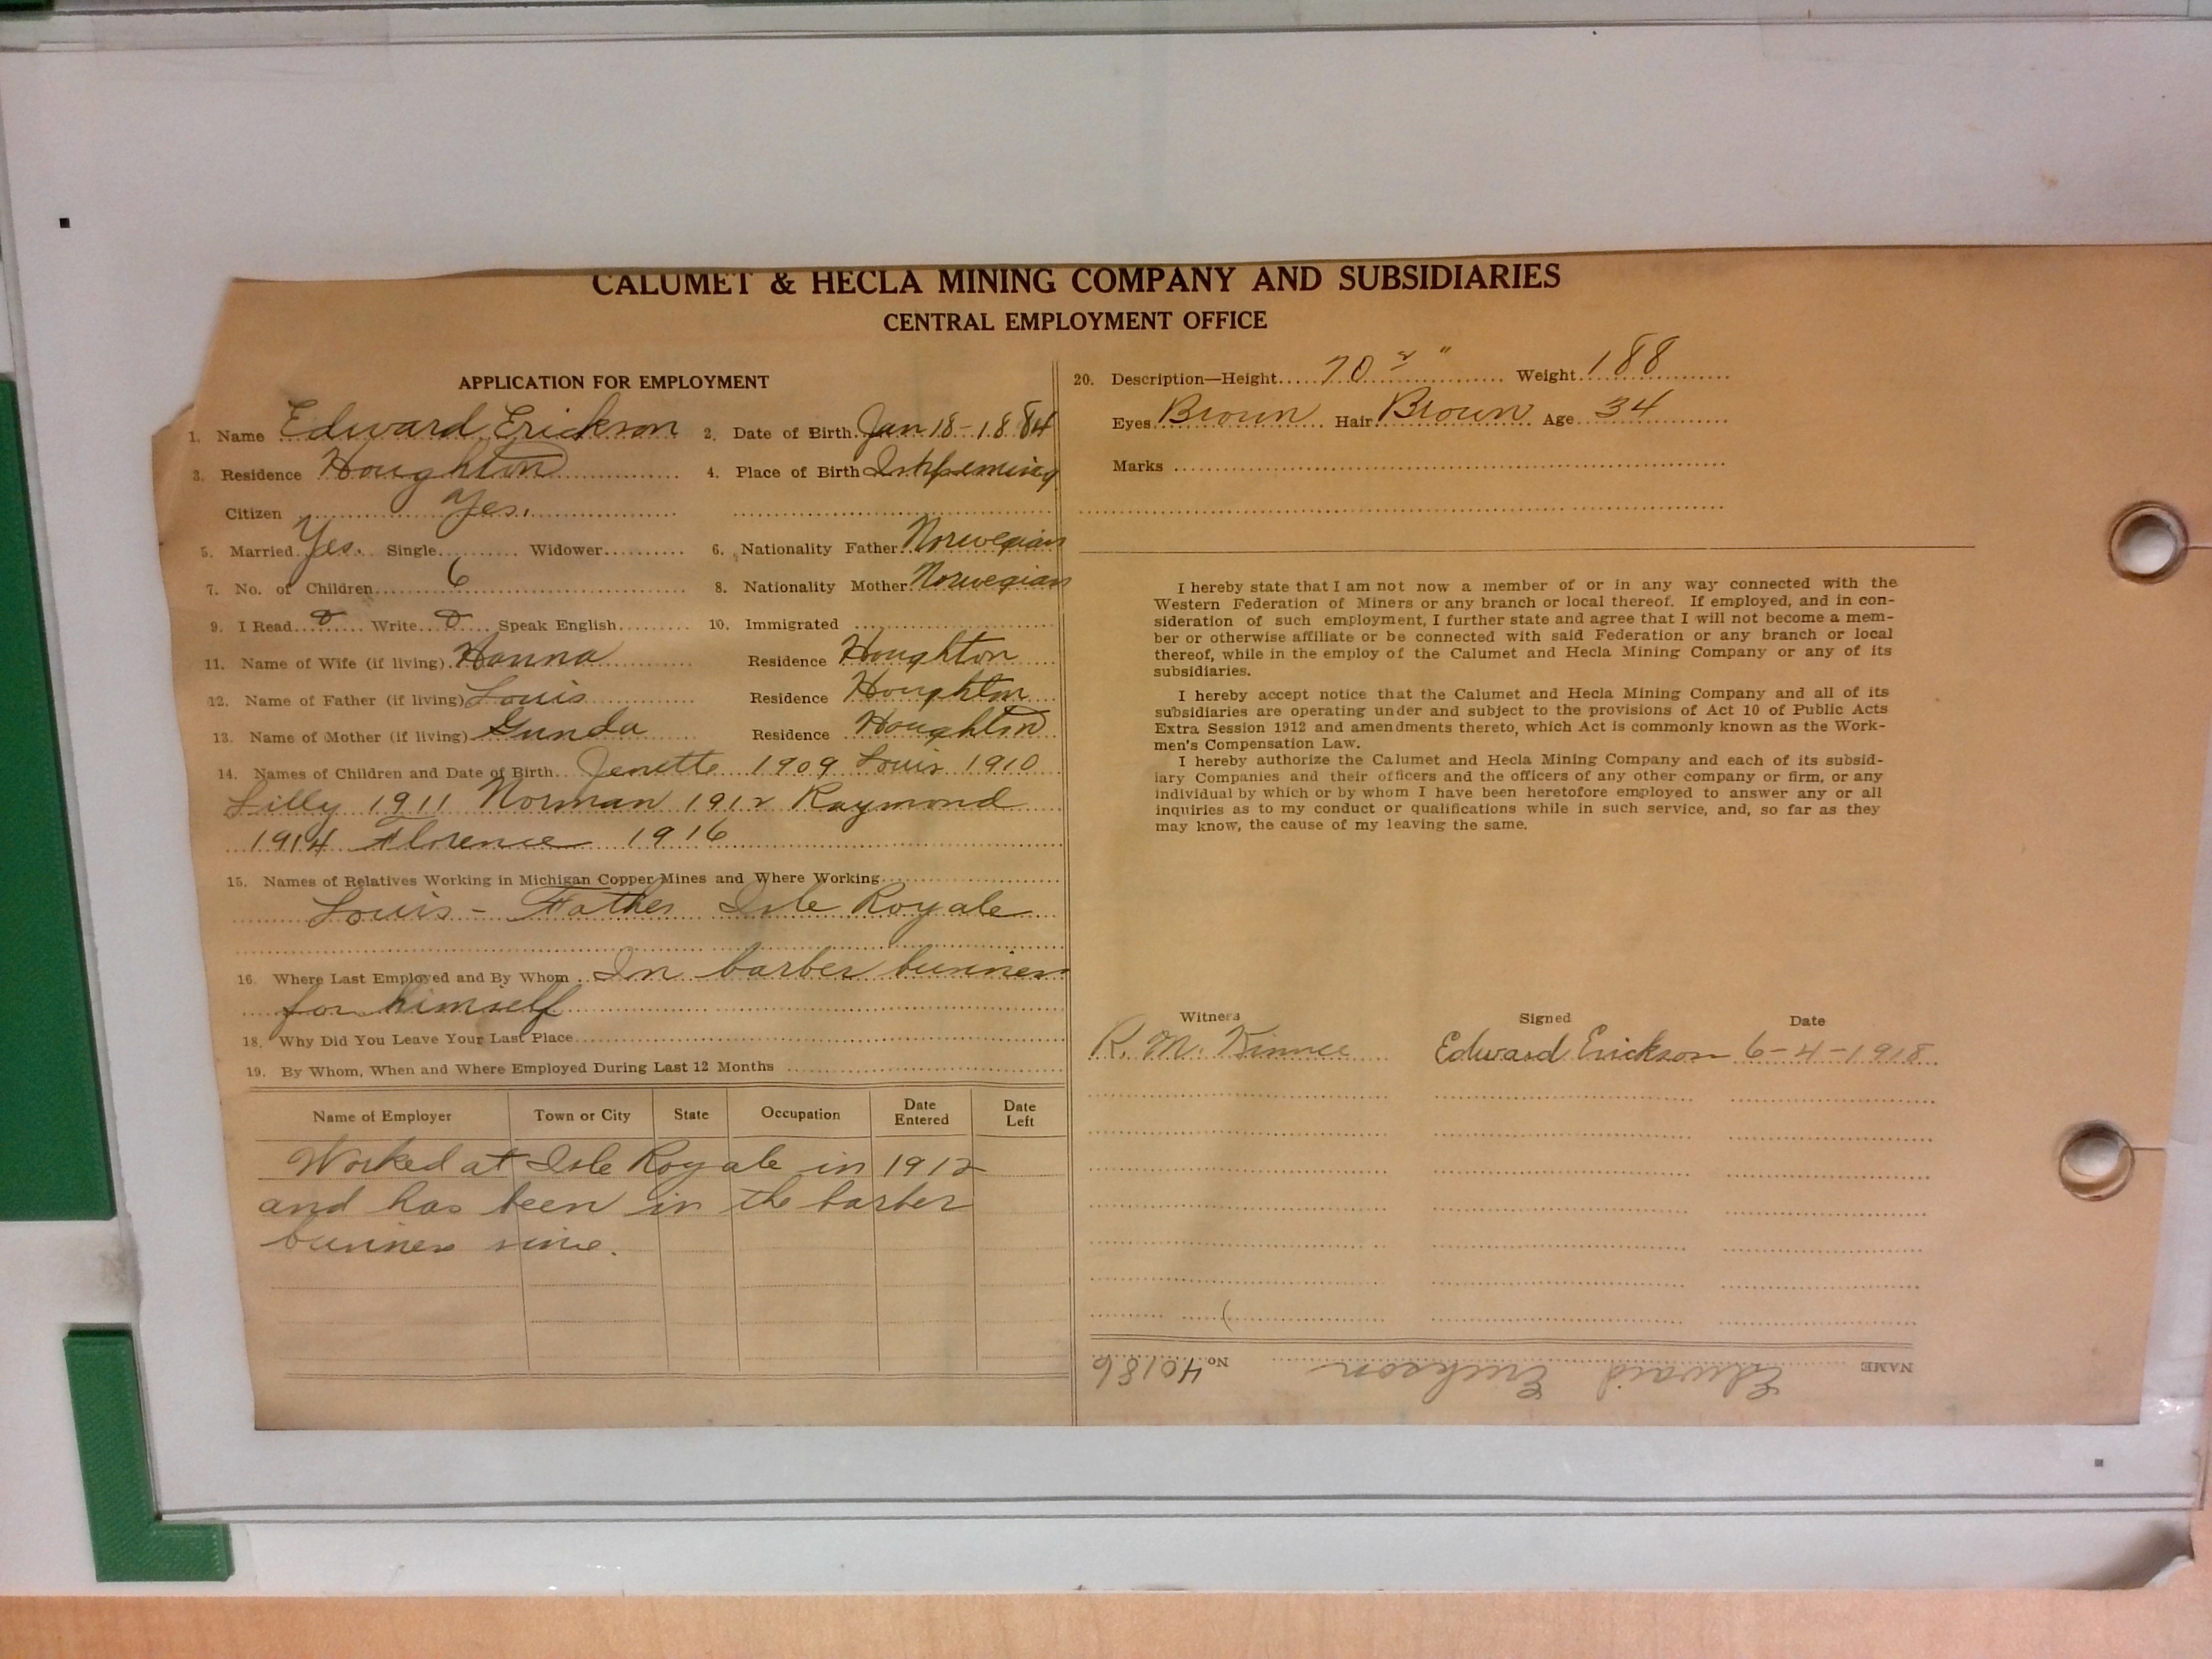 CALUMET & HECLA MINING COMPANY AND SUBSIDIARIES
CENTRAL EMPLOYMENT OFFICE
APPLICATION FOR EMPLOYMENT
1. Name Edward Erickson 2. Date of Birth Jan 18-1884
3. Residence Houghton 4. Place of Birth Ishpeming
Citizen Yes.
5. Married Yes. Single Widower 6. Nationality Father Norwegian
7. No. of Children 6 8. Nationality Mother Norwegian
9. I Read Write Speak English 10. Immigrated
11. Name of Wife (if living) Hanna Residence Houghton
12. Name of Father (if living) Louis Residence Houghton
13. Name of Mother (if living) Gunda Residence Houghton
14. Names of Children and Date of Birth Jenette 1909 Louis 1910
Lilly 1911 Norman 1912 Raymond
1914 Florence 1916
15. Names of Relatives Working in Michigan Copper Mines and Where Working
Louis - Father Isle Royale
16 Where Last Employed and By Whom In barber business
for himself
18. Why Did You Leave Your Last Place
19. By Whom, When and Where Employed During Last 12 Months
Name of Employer Town or City State Occupation Date Entered Date Left
Worked at Isle Royale in 1912
and has been in the barber
business since.
20. Description—Height 70 2 " Weight 188
Eyes Brown Hair Brown Age 34
Marks
I hereby state that I am not now a member of or in any way connected with the
Western Federation of Miners or any branch or local thereof. If employed, and in con-
sideration of such employment, I further state and agree that I will not become a mem-
ber or otherwise affiliate or be connected with said Federation or any branch or local
thereof, while in the employ of the Calumet and Hecla Mining Company or any of its
subsidiaries.
I hereby accept notice that the Calumet and Hecla Mining Company and all of its
subsidiaries are operating under and subject to the provisions of Act 10 of Public Acts
Extra Session 1912 and amendments thereto, which Act is commonly known as the Work-
men's Compensation Law.
I hereby authorize the Calumet and Hecla Mining Company and each of its subsid-
iary Companies and their officers and the officers of any other company or firm, or any
individual by which or by whom I have been heretofore employed to answer any or all
inquiries as to my conduct or qualifications while in such service, and, so far as they
may know, the cause of my leaving the same.
Witness Signed Date
R. M. Kinnee Edward Erickson 6-4-1918
NAME Edward Erickson No. 40186